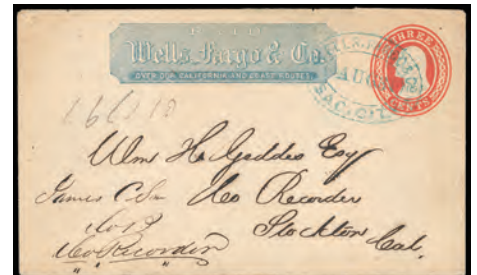 PAID
Wells, Fargo & Co.
OVER OUR CALIFORNIA AND COAST ROUTES
WELLS, FARGO & CO
AUG
SAC. CITY
THREE
CENTS
Wm H. Geddes Esq
Co Recorder
Stockton Cal.
James C.
Co Recorder